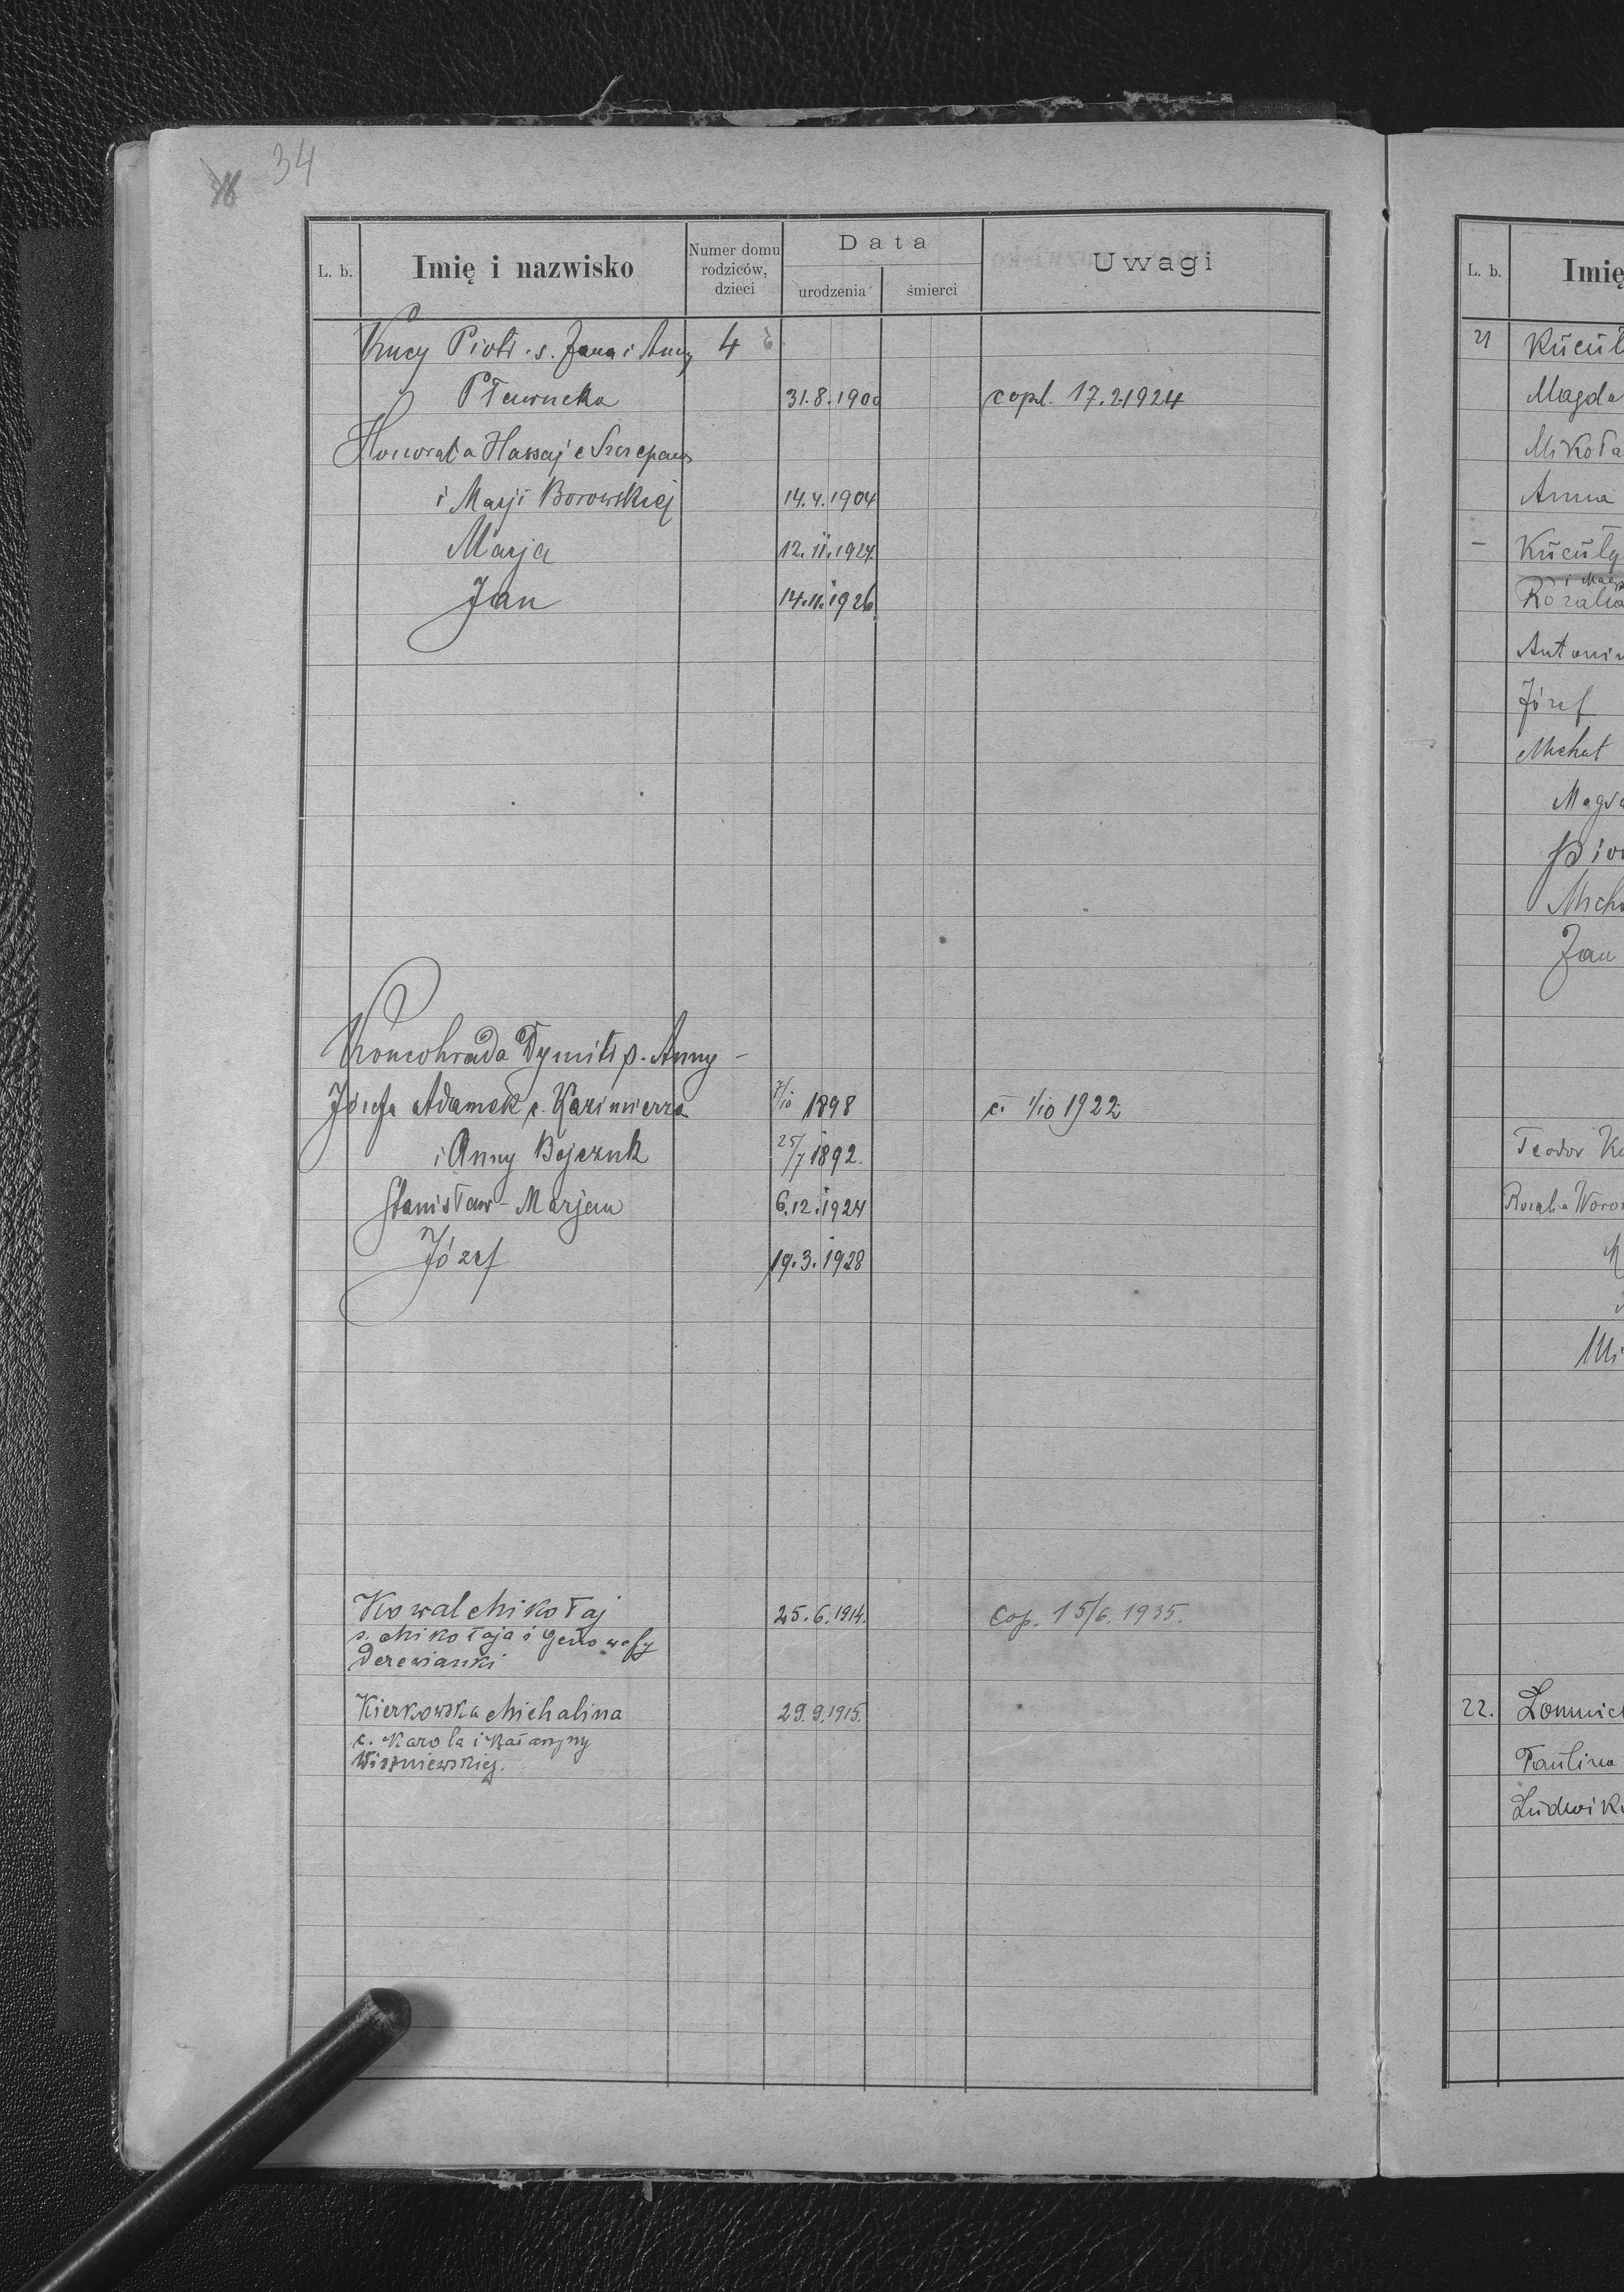 34
L. b. Imię i nazwisko Numer domu rodziców, dzieci Data urodzenia śmierci Uwagi
Kucy Piotr s. Jana i Anny 4
Pławucka 31.8.1900 copul. 17.2.1924
Honorata Hassaj c Szczepana
i Marji Borowskiej 14.4.1904
Marja 12.11.1924
Jan 14.11.1926
Koncohrada Dymitr s. Anny -
Józefa Adamek c. Kazimierza 7/10 1898 c. 1/10 1922
i Anny Bojczuk 25/7 1892.
Stanisław-Marjan 6.12.1924
Józef 19.3.1928
Kowal Mikołaj 25.6.1914. Cop. 15/6.1935.
s. Mikołaja i Genowefy
Derewianki
Kierkowska Michalina 29.9.1915.
c. Karola i Katarzyny
Wiszniewskiej.
L. b. Imię
21 Kucuł
Magda
Mikoła
Anna
- Kucuły
Rozalia
Antoni
Józef
Michał
Magda
Micha
Jan
Teodor
Rozalia Woro
Mi
22. Łomnic
Paulina
Ludwik